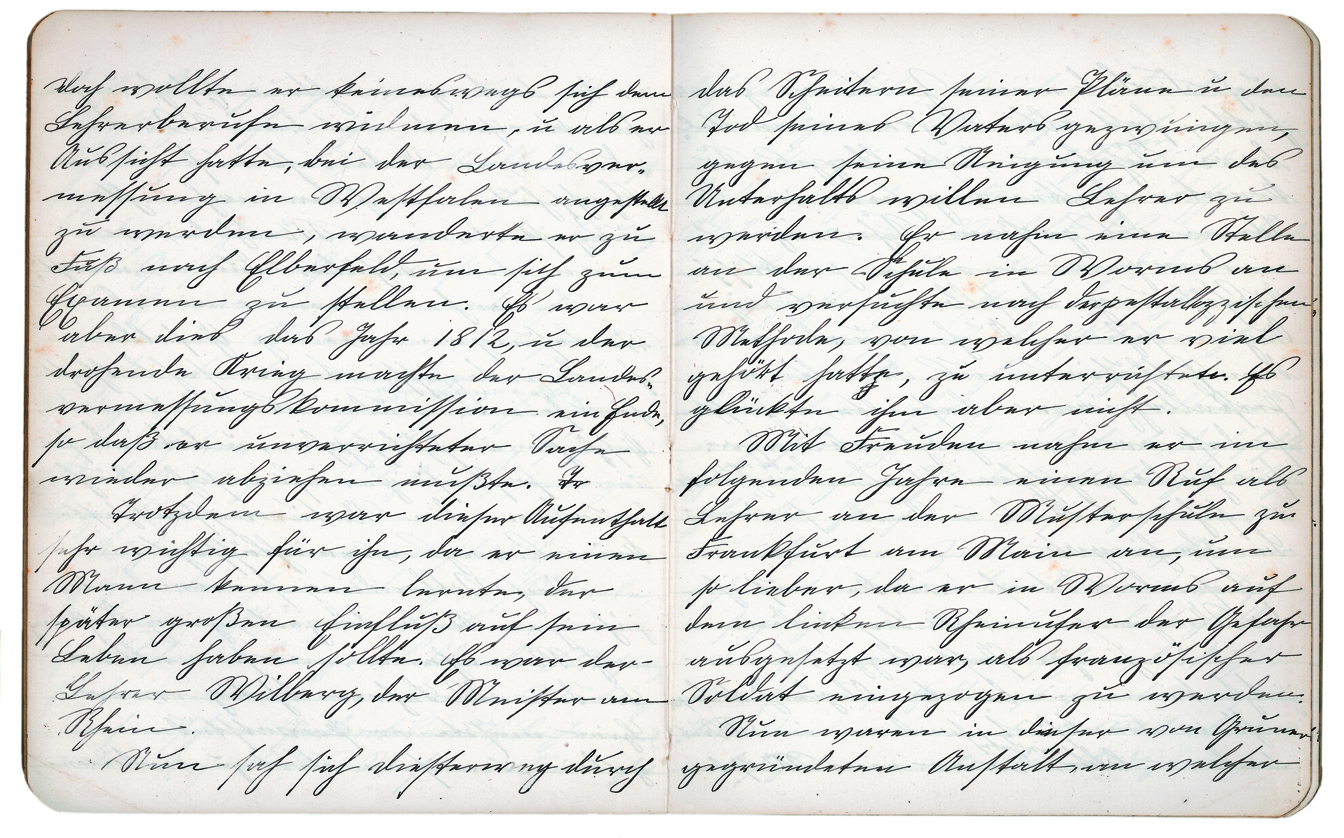 doch wollte er keineswegs sich dem
Lehrerberufe widmen, u als er
Aussicht hatte, bei der Landesver-
messung in Westfalen angestellt
zu werden, wanderte er zu
Fuß nach Elberfeld, um sich zum
Examen zu stellen. Es war
aber dies das Jahr 1812, u der
drohende Krieg machte der Landes-
vermessungskommission ein Ende,
so daß er unverrichteter Sache
wieder abziehen mußte. Tr
Trotzdem war dieser Aufenthalt
sehr wichtig für ihn, da er einen
Mann kennen lernte, der
später großen Einfluß auf sein
Leben haben sollte. Es war der
Lehrer Wilberg, der Meister am
Rhein.
Nun sah sich Diesterweg durch
das Scheitern seiner Pläne u den
Tod seines Vaters gezwungen,
gegen seine Neigung um des
Unterhalts willen Lehrer zu
werden. Er nahm eine Stelle
an der Schule in Worms an
und versuchte nach der pestalozzischen
Methode, von welcher er viel
gehört hatte, zu unterrichten. Es
glückte ihm aber nicht.
Mit Freuden nahm er im
folgenden Jahre einen Ruf als
Lehrer an der Musterschule zu
Frankfurt am Main an, um
so lieber, da er in Worms auf
dem linken Rheinufer der Gefahr
ausgesetzt war, als französischer
Soldat eingezogen zu werden.
Nun waren in dieser von Gruner
gegründeten Anstalt, an welcher